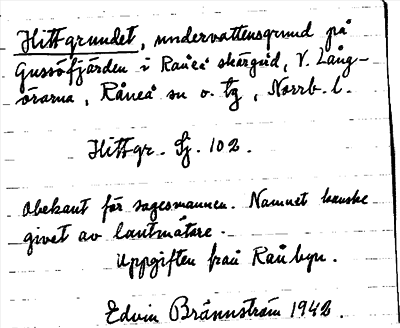 Hittgrundet, undervattensgrund på
Gussöfjärden i Råneå skärgård, V. Lång-
örarna, Råneå sn o. tg, Norrb. l.
Hittgr. Sj. 102.
Obekant för sagesmannen. Namnet kanske
givet av lantmätare.
Uppgiften från Rånbyn.
Edvin Brännström 1942.